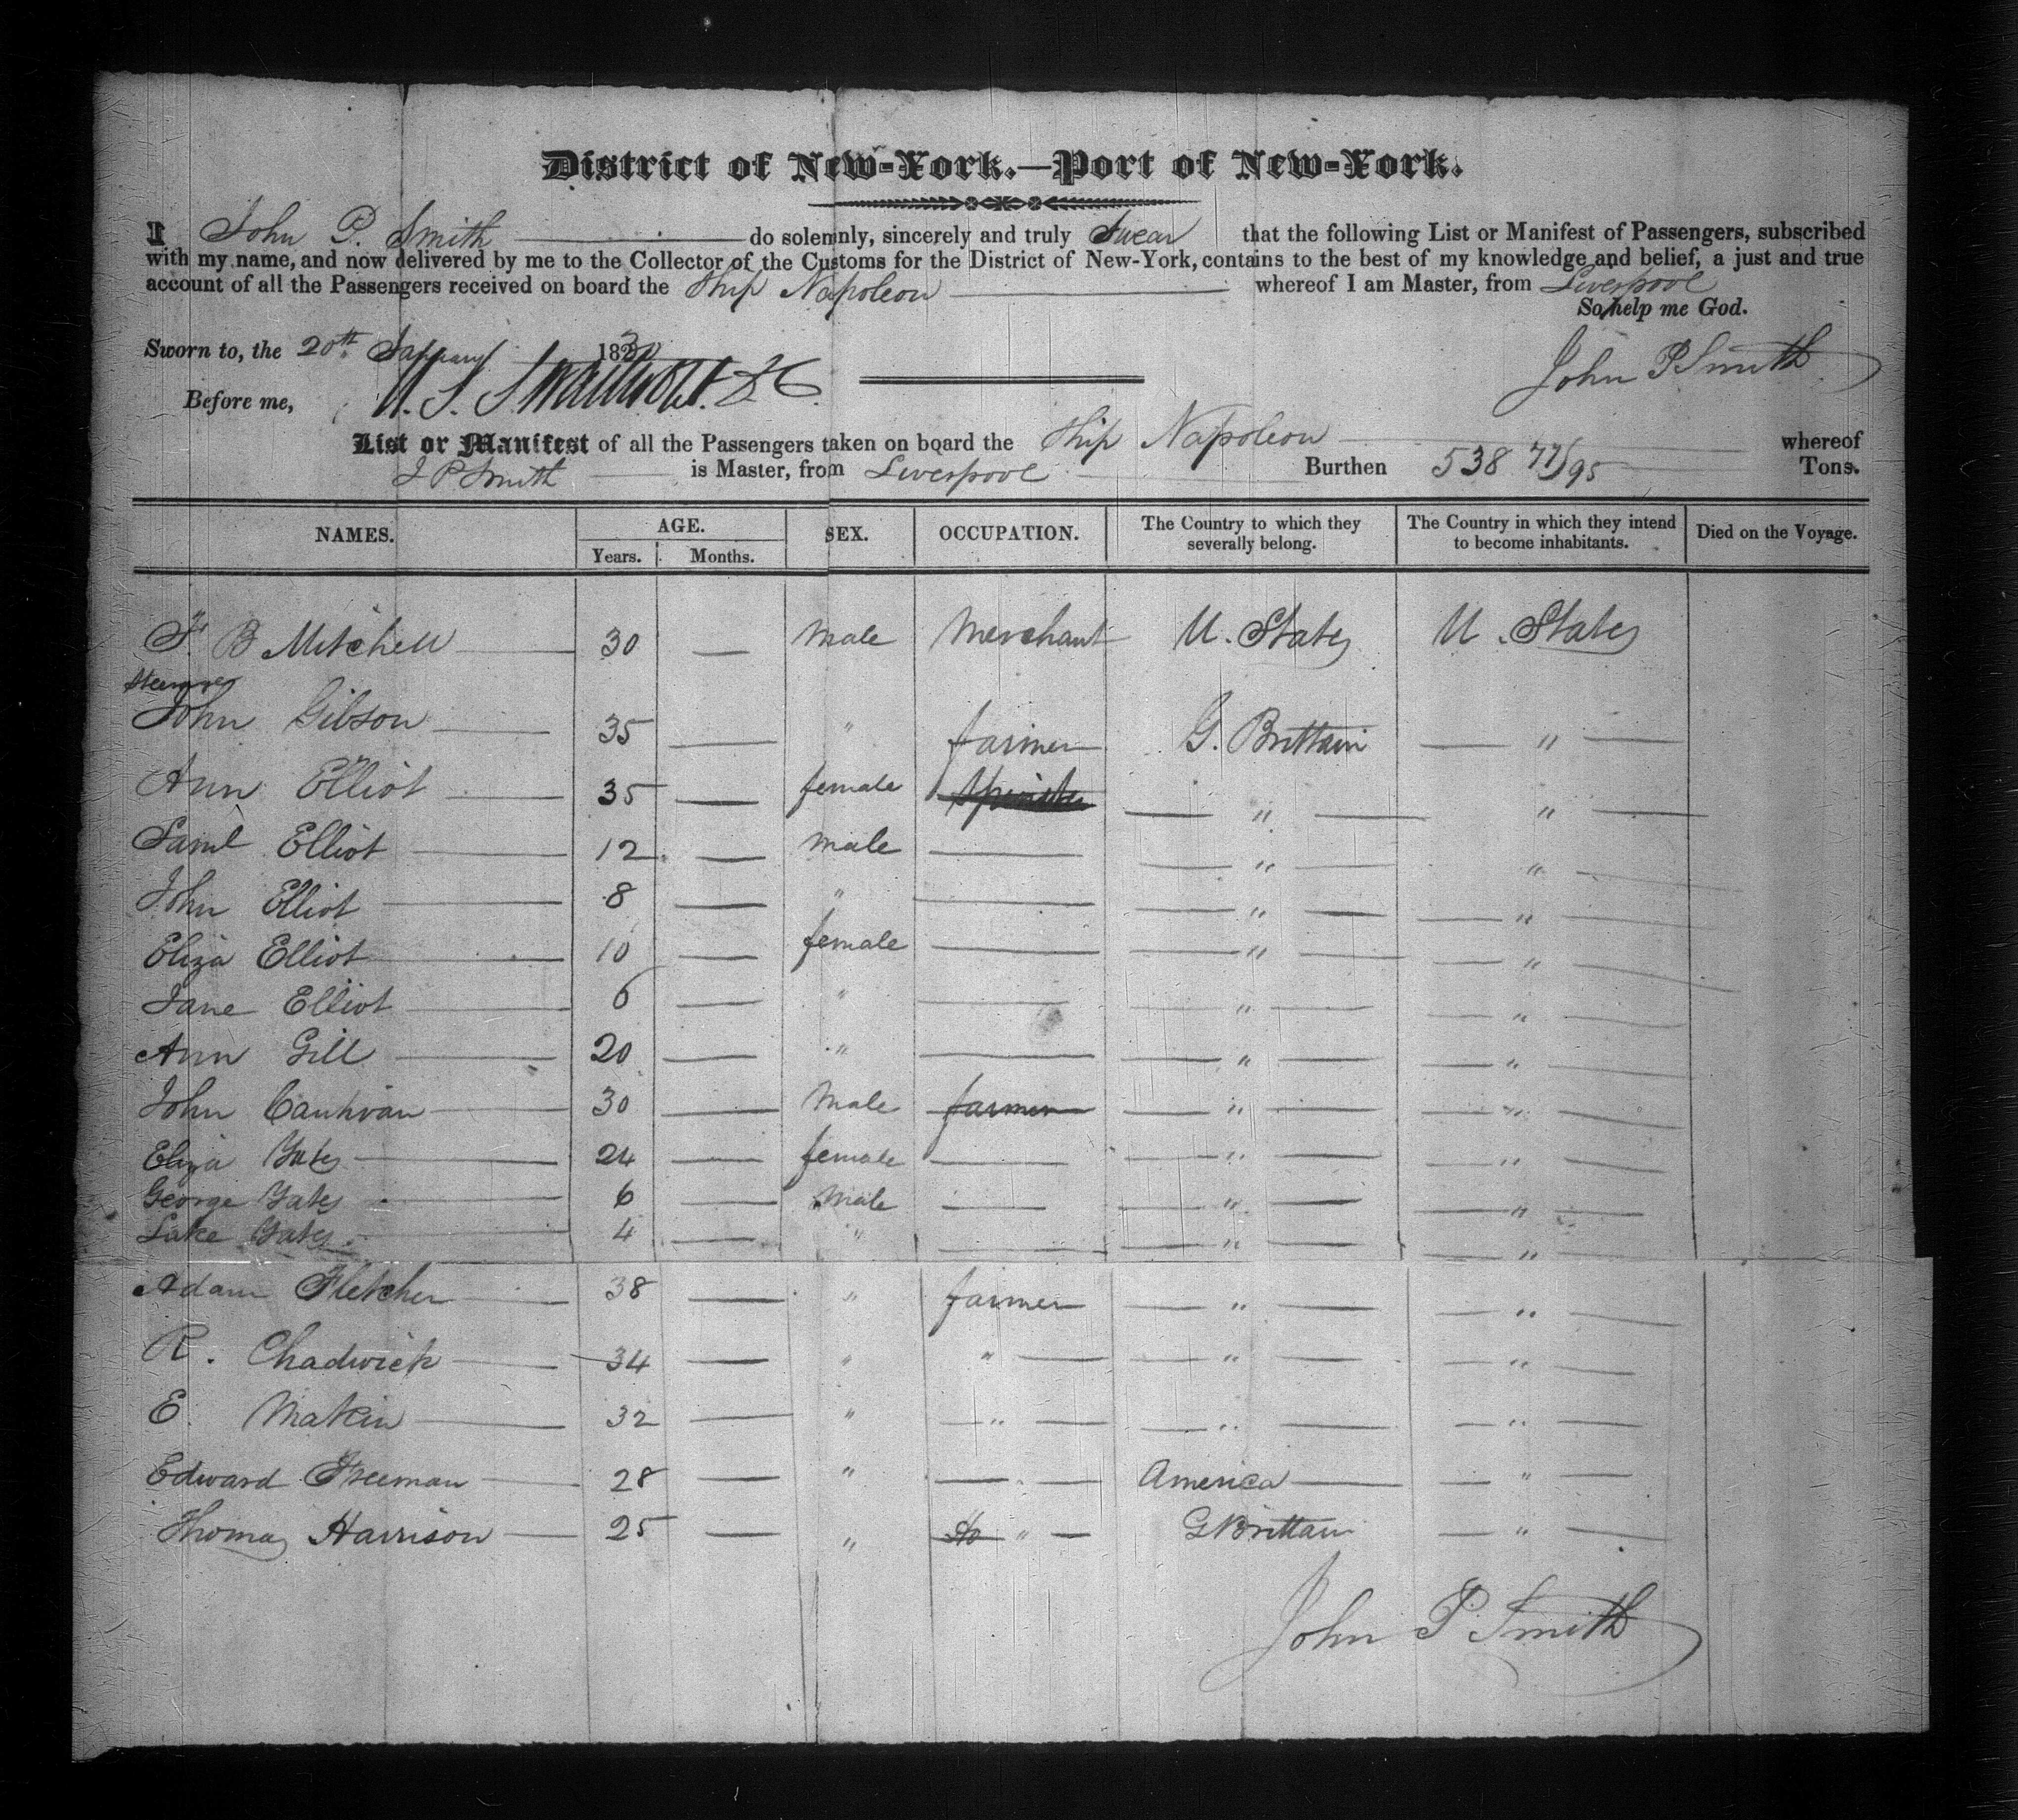 District of New-York.—Port of New-York.
I John P. Smith do solemnly, sincerely and truly Swear that the following List or Manifest of Passengers, subscribed
with my name, and now delivered by me to the Collector of the Customs for the District of New-York, contains to the best of my knowledge and belief, a just and true
account of all the Passengers received on board the Ship Napoleon whereof I am Master, from Liverpool
So help me God.
Sworn to, the 20th January 1830
John P Smith
Before me,
List or Manifest of all the Passengers taken on board the Ship Napoleon whereof
J P Smith is Master, from Liverpool Burthen 538 77/95 Tons.
NAMES. AGE. SEX. OCCUPATION. The Country to which they severally belong. The Country in which they intend to become inhabitants. Died on the Voyage.
Years. Months.
F. B Mitchell 30 — male Merchant U. States U. States
Steerage
John Gibson 35 — " farmer G. Brittain — " —
Ann Elliot 35 — female — " — " —
Saml Elliot 12 — male — — " — " —
John Elliot 8 — " — — " — — " —
Eliza Elliot 10 — female — — " — — " —
Jane Elliot 6 — " — — " — — " —
Ann Gill 20 — " — — " — — " —
John 30 — Male farmer — " — — " —
Eliza Yates 24 — female — — " — — " —
George Yates 6 — Male — — " — — " —
Lake Yates 4 — " — — " — — " —
Adam Fletcher 38 — " farmer — " — — " —
R. Chadwick 34 — " " — — " — — " —
E. Makin 32 — " — " — — " — — " —
Edward Freeman 28 — " — " — America — — " —
Thomas Harrison 25 — " " — G Brittain — " —
John P Smith